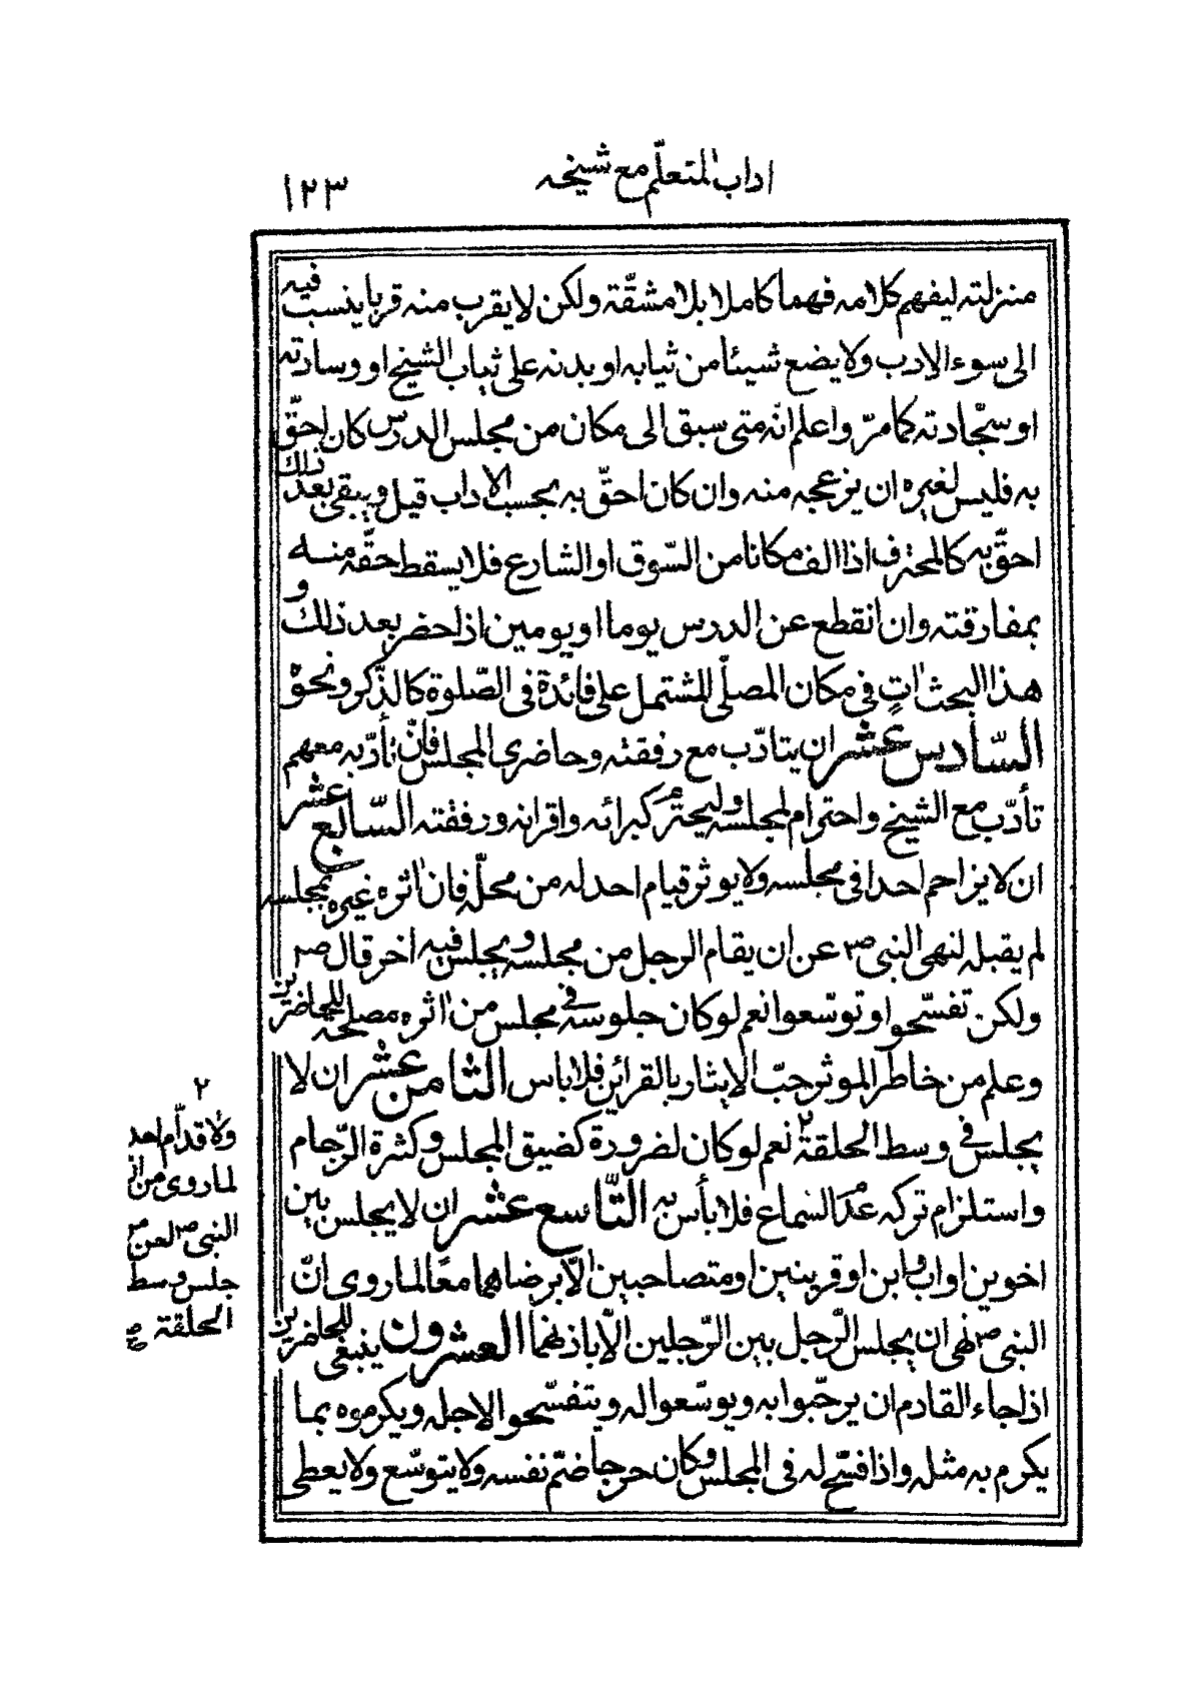 اداب المتعلّم مع شيخه
١٢٣
منزلته ليفهم كلامه فهما كاملا بلا مشقّة ولكن لا يقرب منه قربا ينسب فيه
الى سوء الادب ولا يضع شيئا من ثيابه او بدنه على ثياب الشيخ او وسادته
او سجّادته كما مرّ واعلم انّه متى سبق الى مكان من مجلس الدرس كان احقّ
به فليس لغيره ان يزعجه منه وان كان احقّ به بحسب الاداب قيل ويبقى بعد ذلك
احقّ به كالمحترف اذا الف مكانا من السّوق او الشارع فلا يسقط حقّه منه
بمفارقته وان انقطع عن الدرس يوما او يومين اذا حضر بعد ذلك و
هذا البحث اتٍ فى مكان المصلّى المشتمل على فائدة فى الصّلوة كالذّكر ونحوه
السّادس عشر ان يتادّب مع رفقته وحاضرى المجلس فانّ تأدّبه معهم
تأدّب مع الشيخ واحترام لمجلسه وليحترم كبرائه واقرانه ورفقته السّابع عشر
ان لا يزاحم احدا فى مجلسه ولا يوثر قيام احد له من محلّه فان اثره غيره بمجلسه
لم يقبله لنهى النبى ص عن ان يقام الرجل من مجلسه ويجلس فيه اخر قال ص
ولكن تفسّحوا وتوسّعوا نعم لو كان جلوسه فى مجلس من اثره مصلحه للحاضرين
وعلم من خاطر الموثر حبّ الايثار بالقرائن فلا باس الثامن عشر ان لا
يجلس فى وسط الحلقة ٢ نعم لو كان لضرورة كضيق المجلس وكثرة الزحام
واستلزام تركه عدم السّماع فلا بأس به التّاسع عشر ان لا يجلس بين
اخوين او اب وابن او قرينين او متصاحبين الّا برضاهما معًا لما روى انّ
النبى ص نهى ان يجلس الرّجل بين الرّجلين الّا باذنهما العشرون ينبغى للحاضرين
اذا جاء القادم ان يرحّبوا به ويوسّعوا له ويتفسّحوا لاجله ويكرموه بما
يكرم به مثله واذا فسّح له فى المجلس وكان حرجا ضمّ نفسه ولا يتوسّع ولا يعطى
٢
ولا قدّام احد
لما روى من انّ
النبى ص لعن من
جلس وسط
الحلقة صح